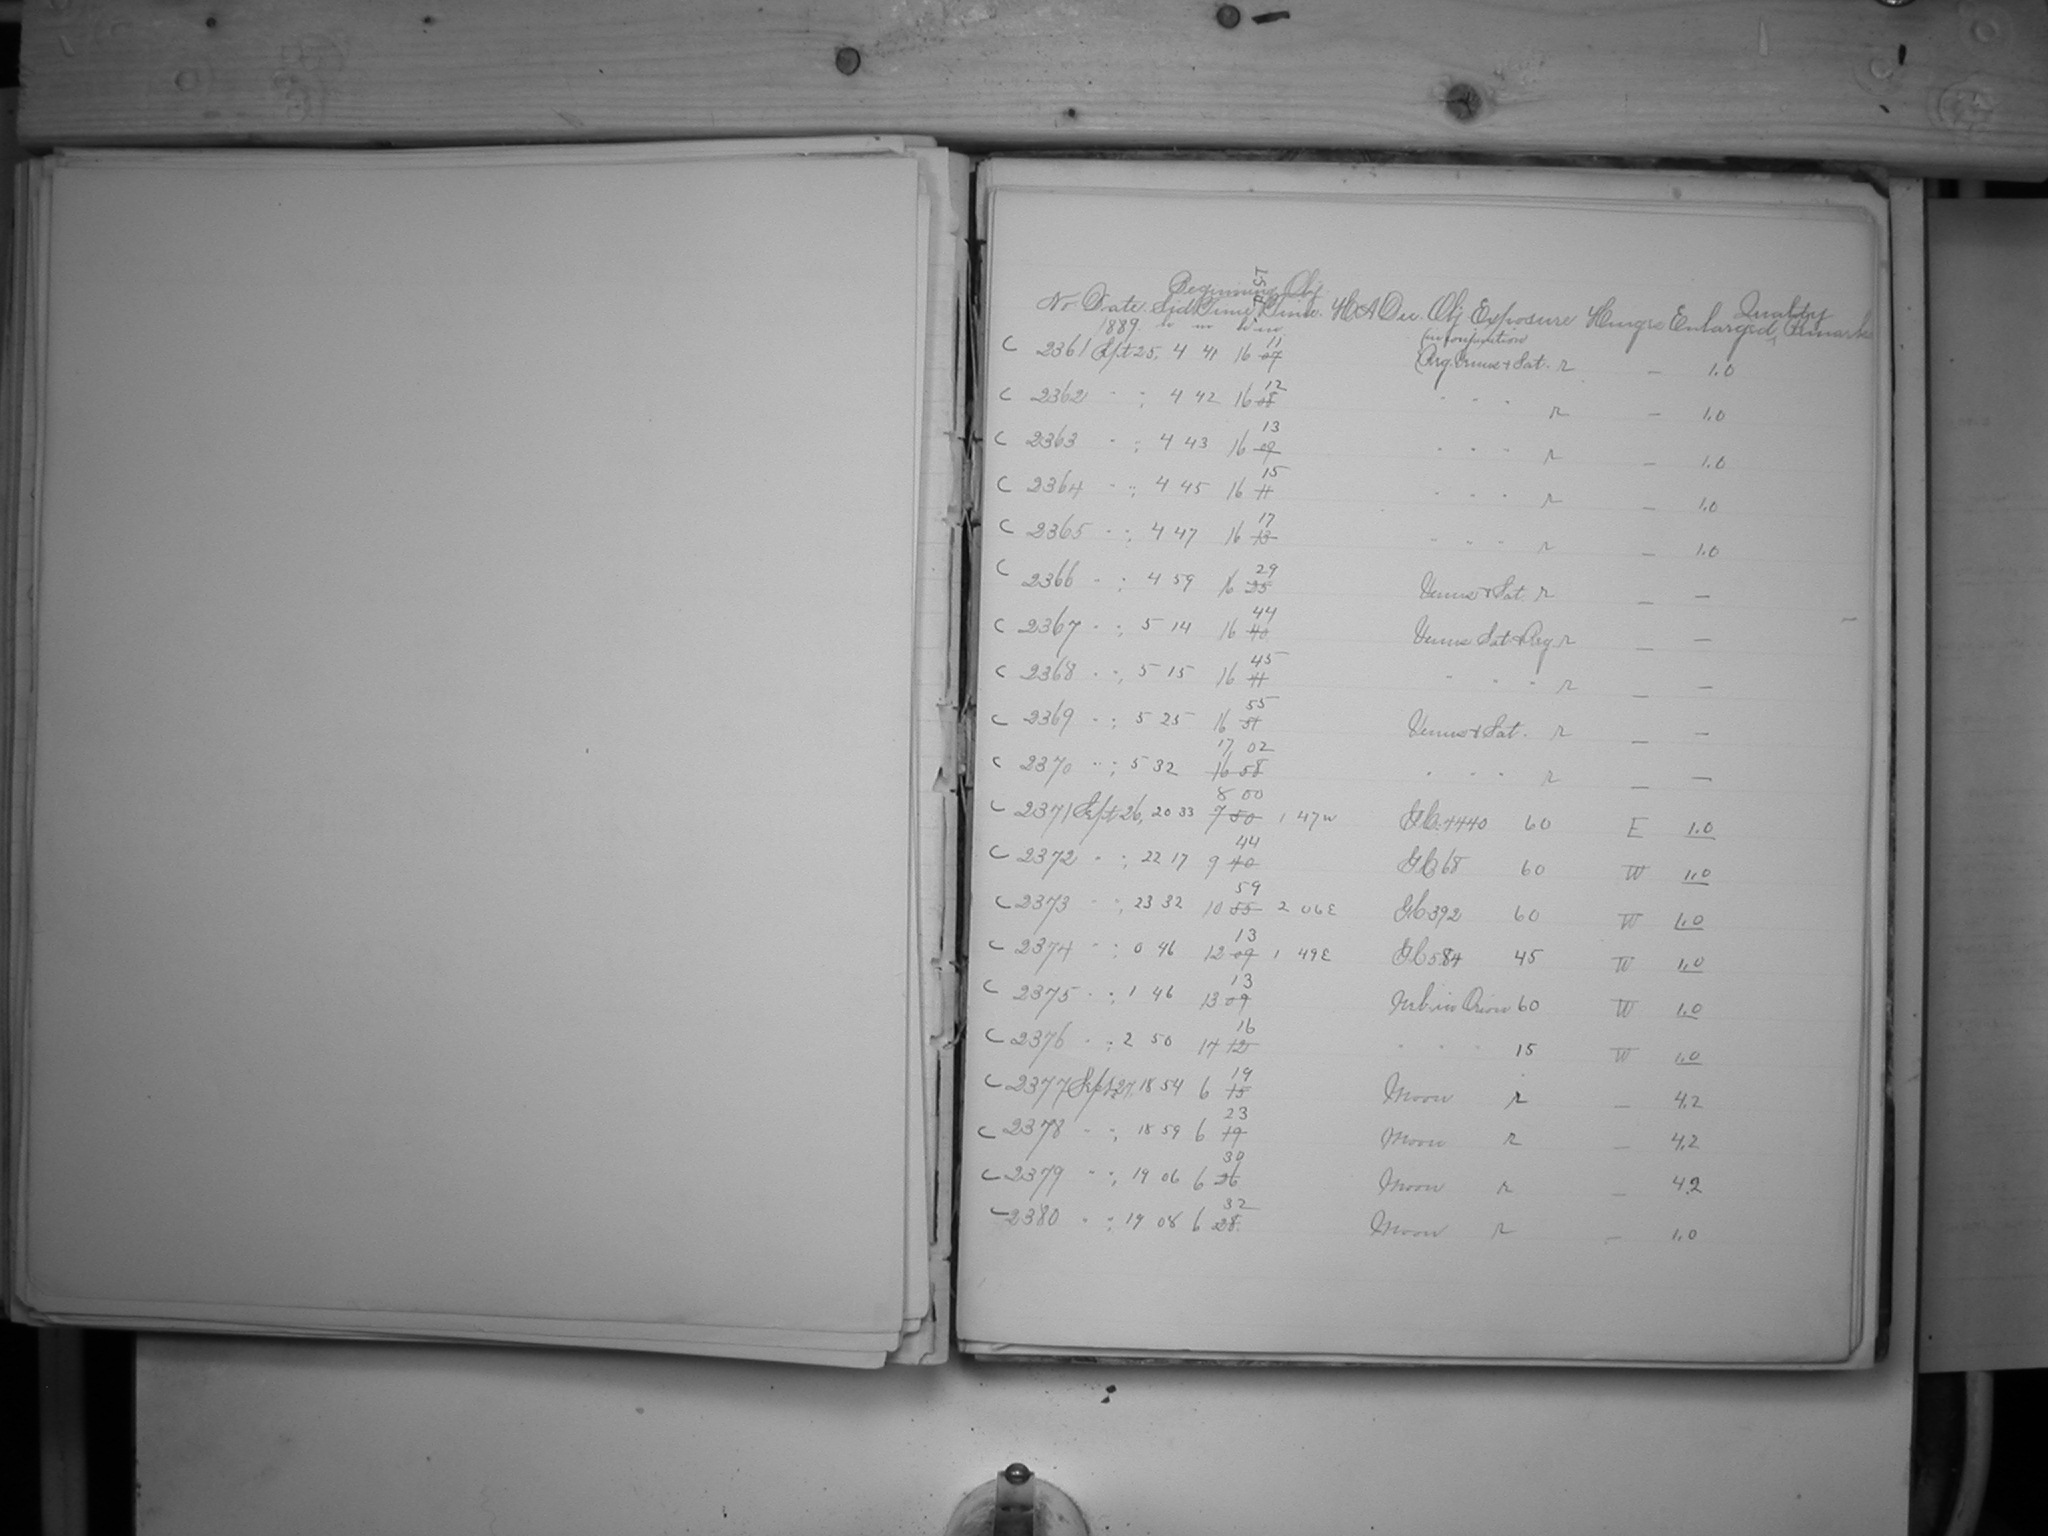 Beginning Obj.
No. Date Sid. Time Time. H A Dec. Obj Exposure Hinge Enlarged Quality Remarks
1889 h m h m
C 2361 Sept 25, 4 41 16 11 07 (in conjunction Reg. Venus + Sat. r — 1.0
C 2362 " ", 4 42 16 12 08 " " " r — 1.0
C 2363 " ", 4 43 16 13 09 " " " r — 1.0
C 2364 " ", 4 45 16 15 11 " " " r — 1.0
C 2365 " ", 4 47 16 17 13 " " " r — 1.0
C 2366 " ", 4 59 16 29 25 Venus + Sat. r — —
C 2367 " ", 5 14 16 44 40 Venus Sat + Reg. r — —
C 2368 " ", 5 15 16 45 41 " " " r — —
C 2369 " ", 5 25 16 55 51 Venus + Sat. r — —
C 2370 " ", 5 32 17 02 16 58 " " " r — —
C 2371 Sept 26, 20 33 8 00 7 50 1 47 w G.C. 4440 60 E 1.0
C 2372 " ", 22 17 9 44 40 G.C. 68 60 W 1.0
C 2373 " ", 23 32 10 59 55 2 06 E G.C. 392 60 W 1.0
C 2374 " ", 0 46 12 13 09 1 49 E G.C. 584 45 W 1.0
C 2375 " ", 1 46 13 13 09 Neb. in Orion 60 W 1.0
C 2376 " ", 2 50 14 16 12 " " " 15 W 1.0
C 2377 Sept. 27, 18 54 6 19 15 Moon r — 4.2
C 2378 " ", 18 59 6 23 19 Moon r — 4.2
C 2379 " ", 19 06 6 30 26 Moon r — 4.2
C 2380 " ", 19 08 6 32 28. Moon r — 1.0